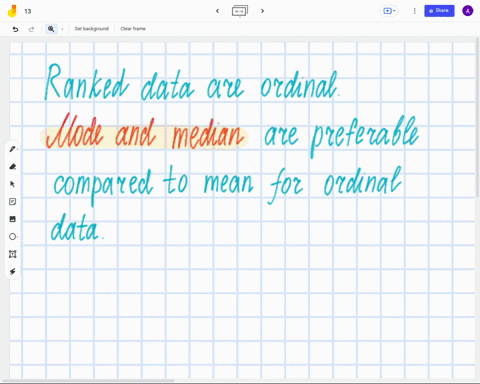 13
Share
A
Set background
Clear frame
Ranked data are ordinal.
Mode and median are preferable
compared to mean for ordinal
data.